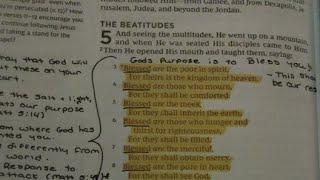 rusalem, Judea, and beyond the Jordan.
THE BEATITUDES
5 And seeing the multitudes, He went up on a mountain,
and when He was seated His disciples came to Him
2 Then He opened His mouth and taught them, saying:
God's Purpose is to Bless you
3 "Blessed are the poor in spirit,
For theirs is the kingdom of heaven.
4 Blessed are those who mourn,
For they shall be comforted.
5 Blessed are the meek,
For they shall inherit the earth.
6 Blessed are those who hunger and
thirst for righteousness,
For they shall be filled.
7 Blessed are the merciful,
For they shall obtain mercy.
8 Blessed are the pure in heart,
For they shall see God.
even when
persecuted is to? How
u to encourage you
continue following Jesus
taking a stand for the
spel?
that God will
these on your
art.
the salt + light,
our purpose
5:14)
where God has
you.
differently from
world.
Response to
attack (matt 5:4
- This sha
be our res